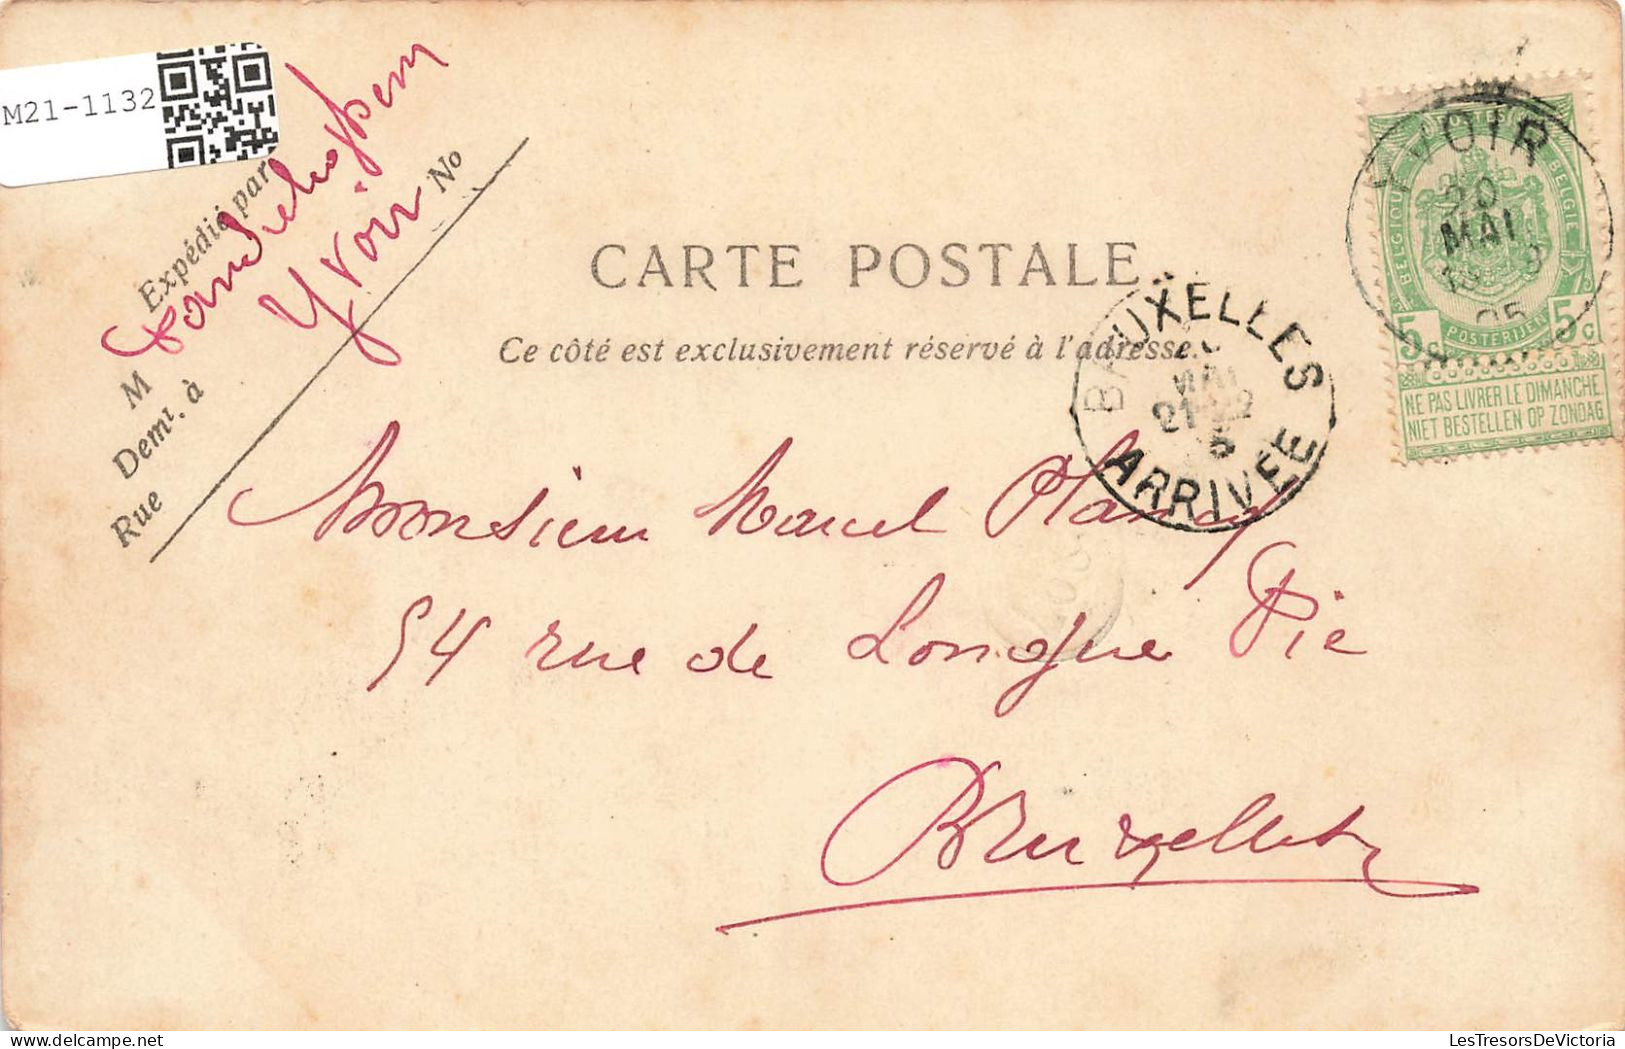 M21-1132
Expédié par
M
Dem<sup>t</sup>. à
Rue
No
Yvoir
CARTE POSTALE.
Ce côté est exclusivement réservé à l'adresse.
YVOIR
20
MAI
05
BELGIQUE
BELGIË
POSTERIJEN
5c
5c
NE PAS LIVRER LE DIMANCHE
NIET BESTELLEN OP ZONDAG
BRUXELLES
MAI
21-22
5
ARRIVEE
Monsieur Marcel
54 rue de Longue Vie
Bruxelles
LesTresorsDeVictoria